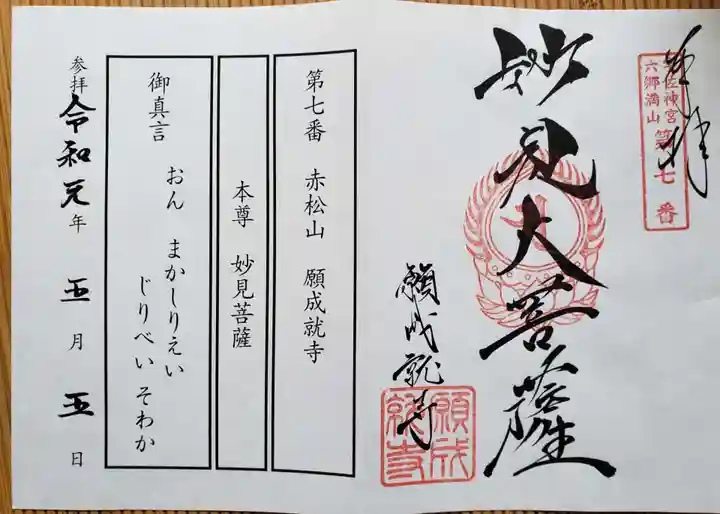 奉拝
宇佐神宮
六郷満山
第七番
妙見大菩薩
願成就寺
願成
就寺
第七番 赤松山 願成就寺
本尊 妙見菩薩
御真言 おん まかしりえい
じりべい そわか
参拝 令和元年 五月 五日